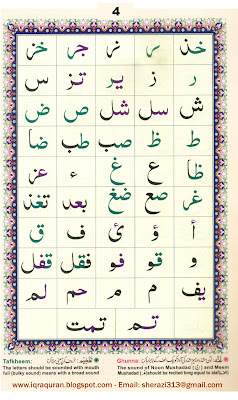 4
خذ ر نر جر خز
ر ز یر تز س
ش سل شل ص ض
ط ظ صب طب ضا
ظا ع غ ء عز
غر صع ضغ بعد تغذ
أ ؤ ئ ف ق
و قو فو فقل قفل
یف م م حم لم
تم تمت
Tafkheem:
The letters should be sounded with mouth
full (bulky sound) means with a broad sound
Ghunna:
The sound of Noon Mushadad (نّ) and Meem
Mushadad (مّ) should be recited long equal to alif(ا)
www.iqraquran.blogspot.com - Email: sherazi313@gmail.com